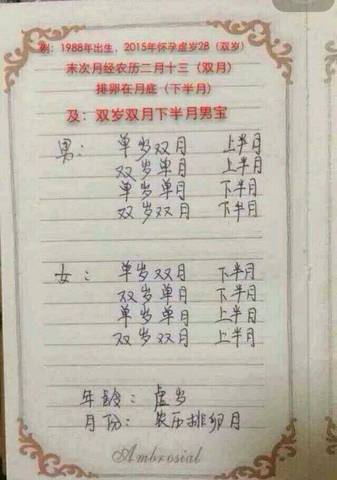 例：1988年出生，2015年怀孕虚岁28（双岁）
末次月经农历二月十三（双月）
排卵在月底（下半月）
及：双岁双月下半月男宝
男： 单岁双月 上半月
双岁单月 上半月
单岁单月 下半月
双岁双月 下半月
女： 单岁双月 下半月
双岁单月 下半月
单岁单月 上半月
双岁双月 上半月
年龄：虚岁
月份：农历排卵月
Ambrosial